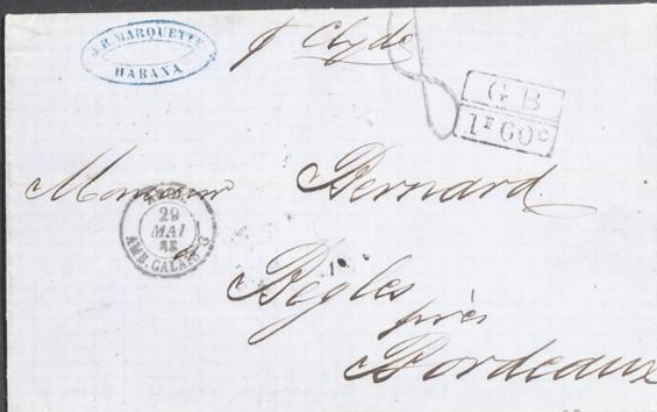 J.B. MARQUETTE
HABANA
p Clyde
G B
1F 60c
Monsieur Bernard
29
MAI
AMB. CALAIS
Bègles
près
Bordeaux